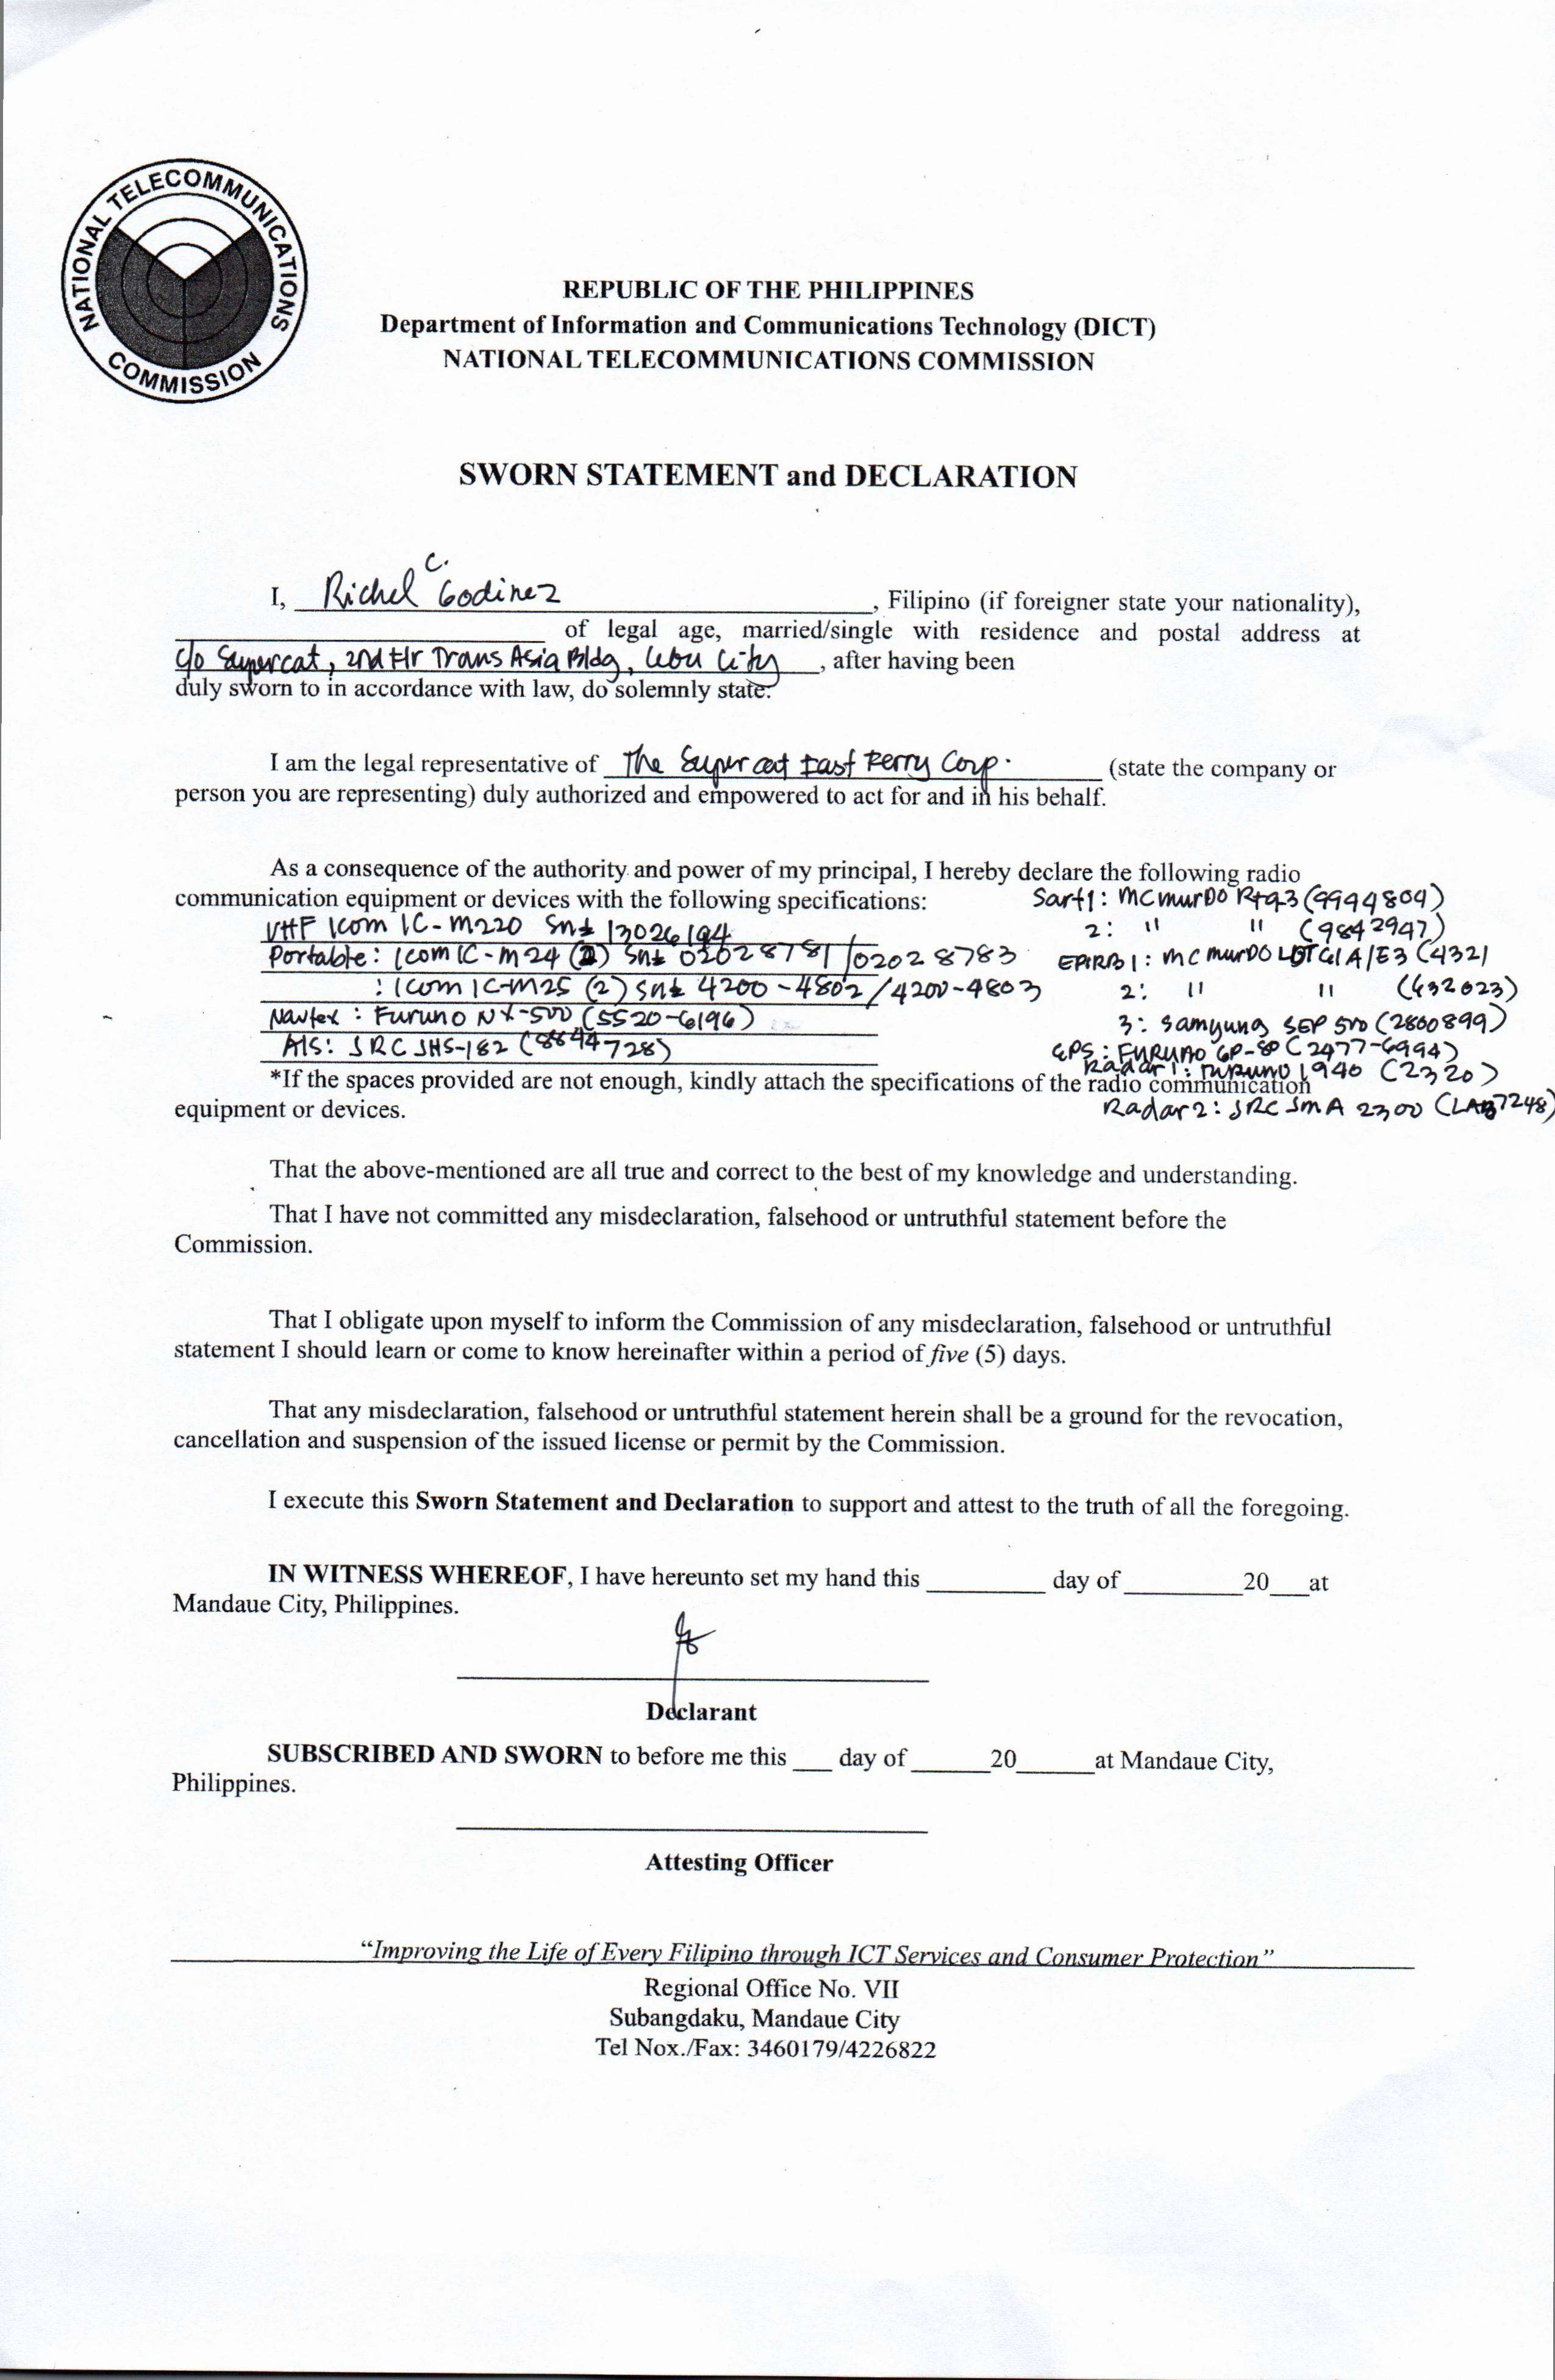 NATIONAL TELECOMMUNICATIONS COMMISSION
REPUBLIC OF THE PHILIPPINES
Department of Information and Communications Technology (DICT)
NATIONAL TELECOMMUNICATIONS COMMISSION
SWORN STATEMENT and DECLARATION
I, Richel C. Godinez, Filipino (if foreigner state your nationality),
of legal age, married/single with residence and postal address at
c/o Supercat, 2nd Flr Trans Asia Bldg, Cebu City, after having been
duly sworn to in accordance with law, do solemnly state:
I am the legal representative of The Supercat Fast Ferry Corp. (state the company or
person you are representing) duly authorized and empowered to act for and in his behalf.
As a consequence of the authority and power of my principal, I hereby declare the following radio
communication equipment or devices with the following specifications:
VHF Icom IC-M220 Sn# 13026194
Portable: Icom IC-M24 (2) Sn# 02028781/02028783
: Icom IC-M25 (2) Sn# 4200-4802/4200-4803
Navtex: Furuno NX-500 (5520-6196)
AIS: JRC JHS-182 (8844728)
Sart1: McMurDO (9944804)
2: " " (9842947)
EPIRB1: McMurDO (4321
2: " " (432023)
3: Samyung SEP 500 (2800899)
GPS: FURUNO GP-80 (2477-6994)
Radar1: Furuno 1940 (2320)
Radar2: JRC JMA 2300
*If the spaces provided are not enough, kindly attach the specifications of the radio communication
equipment or devices.
That the above-mentioned are all true and correct to the best of my knowledge and understanding.
That I have not committed any misdeclaration, falsehood or untruthful statement before the
Commission.
That I obligate upon myself to inform the Commission of any misdeclaration, falsehood or untruthful
statement I should learn or come to know hereinafter within a period of five (5) days.
That any misdeclaration, falsehood or untruthful statement herein shall be a ground for the revocation,
cancellation and suspension of the issued license or permit by the Commission.
I execute this Sworn Statement and Declaration to support and attest to the truth of all the foregoing.
IN WITNESS WHEREOF, I have hereunto set my hand this ____ day of ____ 20__ at
Mandaue City, Philippines.
Declarant
SUBSCRIBED AND SWORN to before me this ___ day of ____ 20____ at Mandaue City,
Philippines.
Attesting Officer
“Improving the Life of Every Filipino through ICT Services and Consumer Protection”
Regional Office No. VII
Subangdaku, Mandaue City
Tel Nox./Fax: 3460179/4226822